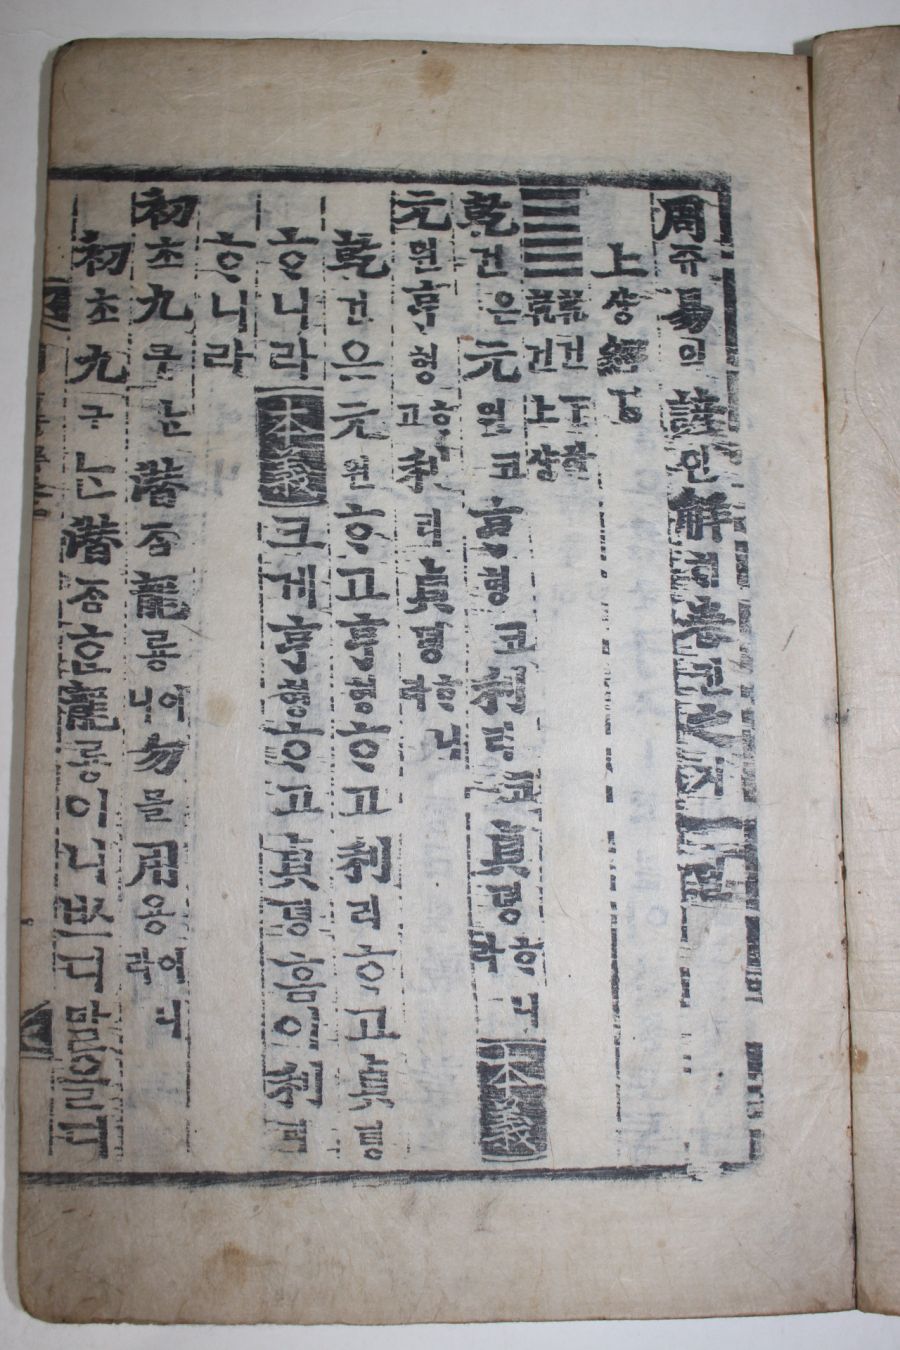 周쥬易역諺언解ᄒᆡ卷권之지一일
上샹經경
䷀ 乾건下하 乾건上샹
乾건은元원코亨형코利리코貞뎡ᄒᆞ니라 本義
元원亨형ᄒᆞ고利리貞뎡ᄒᆞ니라
乾건은元원ᄒᆞ고亨형ᄒᆞ고利리ᄒᆞ고貞뎡
ᄒᆞ니라 本義 크게亨형ᄒᆞ고貞뎡홈이利리
ᄒᆞ니라
初초九구ᄂᆞᆫ潛ᄌᆞᆷ龍룡이니勿믈用용이니라
初초九구ᄂᆞᆫ潛ᄌᆞᆷᄒᆞᆫ龍룡이니